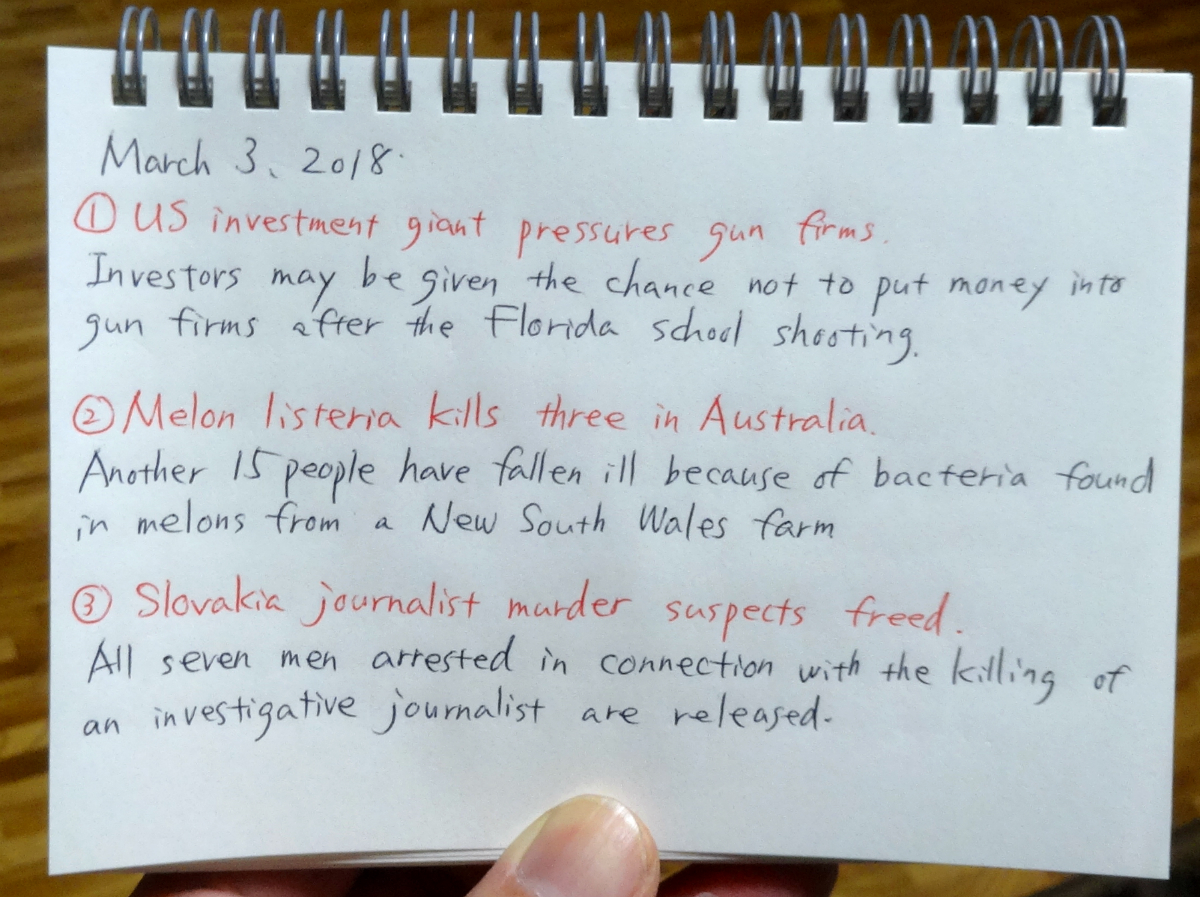 March 3、2018.
① US investment giant pressures gun firms.
Investors may be given the chance not to put money into
gun firms after the Florida school shooting.
② Melon listeria kills three in Australia.
Another 15 people have fallen ill because of bacteria found
in melons from a New South Wales farm
③ Slovakia journalist murder suspects freed.
All seven men arrested in connection with the killing of
an investigative journalist are released.